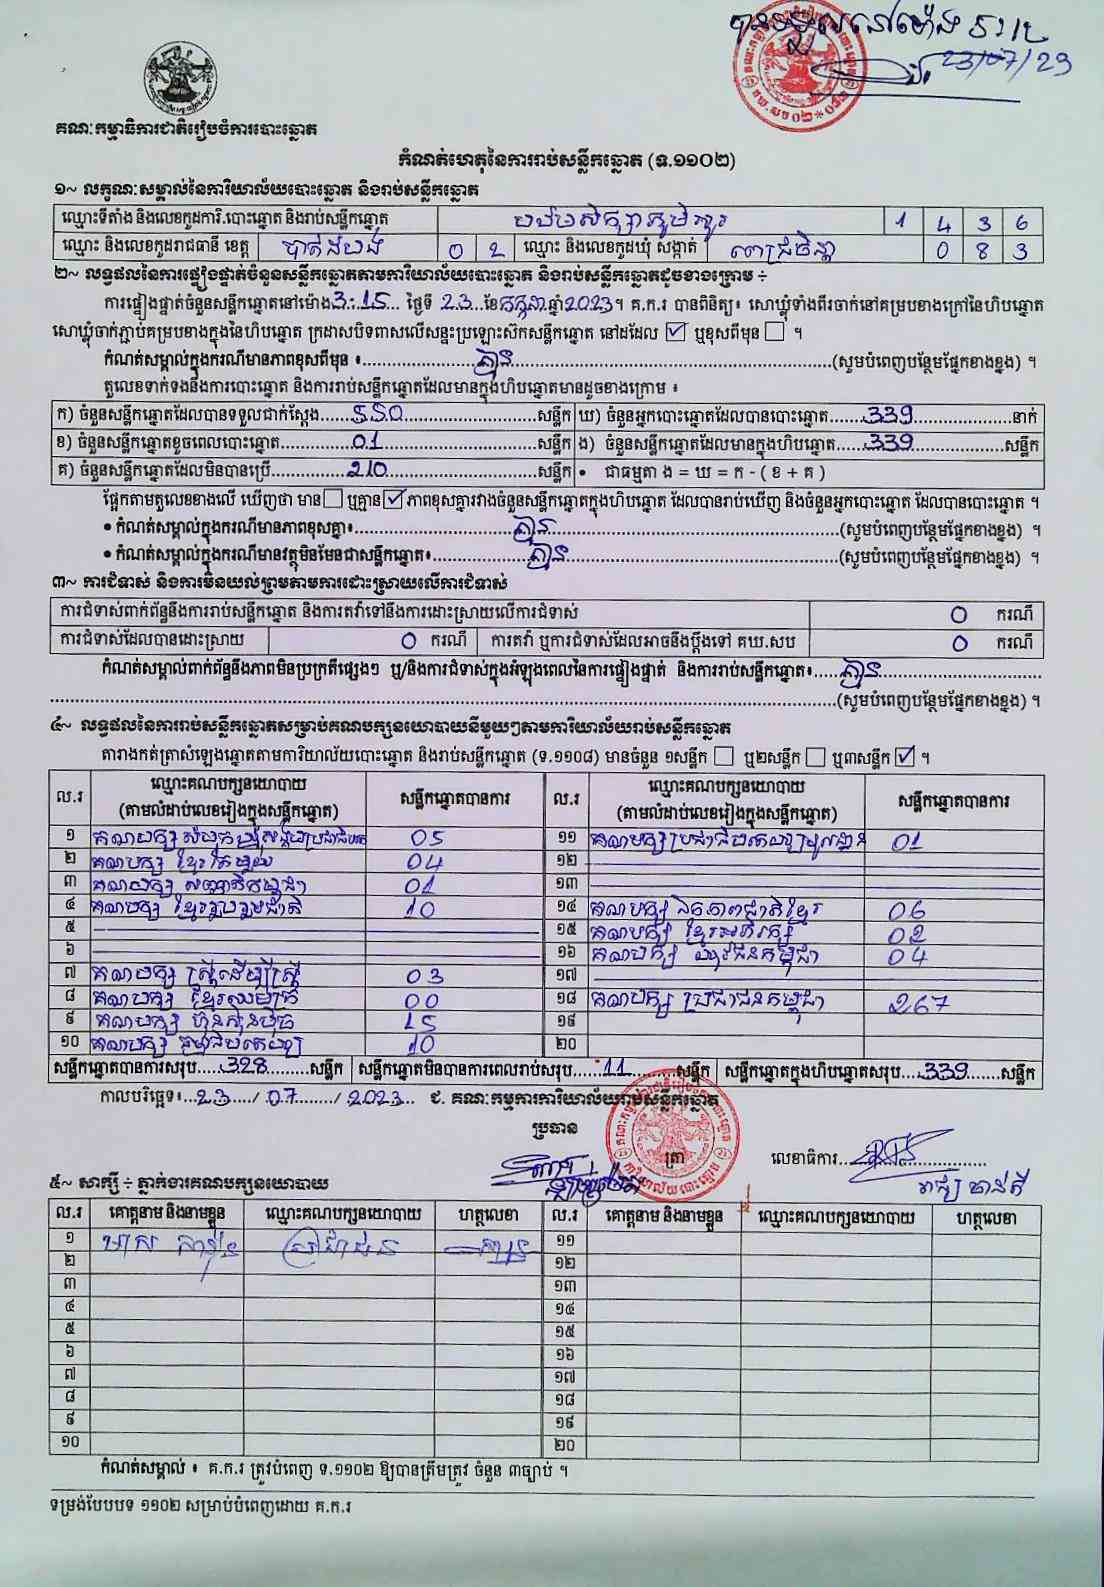 បានទទួលនៅម៉ោង
23/07/23
គណៈកម្មាធិការជាតិរៀបចំការបោះឆ្នោត
កំណត់ហេតុនៃការរាប់សន្លឹកឆ្នោត (ទ.១១០២)
១~ លក្ខណៈសម្គាល់នៃការិយាល័យបោះឆ្នោត និងរាប់សន្លឹកឆ្នោត
ឈ្មោះទីតាំង និងលេខកូដការិ.បោះឆ្នោត និងរាប់សន្លឹកឆ្នោត 1 4 3 6
ឈ្មោះ និងលេខកូដរាជធានី ខេត្ត បាត់ដំបង 0 2 ឈ្មោះ និងលេខកូដឃុំ សង្កាត់ 0 8 3
២~ លទ្ធផលនៃការផ្ទៀងផ្ទាត់ចំនួនសន្លឹកឆ្នោតតាមការិយាល័យបោះឆ្នោត និងរាប់សន្លឹកឆ្នោតដូចខាងក្រោម ÷
ការផ្ទៀងផ្ទាត់ចំនួនសន្លឹកឆ្នោតនៅម៉ោង 3:15 ថ្ងៃទី 23 ខែ កក្កដា ឆ្នាំ 2023។ គ.ក.រ បានពិនិត្យ៖ សោឃ្លុំទាំងពីរចាក់នៅគម្របខាងក្រៅនៃហិបឆ្នោត
សោឃ្លុំចាក់ភ្ជាប់គម្របខាងក្នុងនៃហិបឆ្នោត ក្រដាសបិទពាសលើសន្ទះប្រឡោះស៊កសន្លឹកឆ្នោត នៅដដែល ☑ ឬខុសពីមុន ☐ ។
កំណត់សម្គាល់ក្នុងករណីមានភាពខុសពីមុន ៖ គ្មាន (សូមបំពេញបន្ថែមផ្នែកខាងខ្នង) ។
តួលេខទាក់ទងនឹងការបោះឆ្នោត និងការរាប់សន្លឹកឆ្នោតដែលមានក្នុងហិបឆ្នោតមានដូចខាងក្រោម ៖
ក) ចំនួនសន្លឹកឆ្នោតដែលបានទទួលជាក់ស្តែង 550 សន្លឹក ឃ) ចំនួនអ្នកបោះឆ្នោតដែលបានបោះឆ្នោត 339 នាក់
ខ) ចំនួនសន្លឹកឆ្នោតខូចពេលបោះឆ្នោត 01 សន្លឹក ង) ចំនួនសន្លឹកឆ្នោតដែលមានក្នុងហិបឆ្នោត 339 សន្លឹក
គ) ចំនួនសន្លឹកឆ្នោតដែលមិនបានប្រើ 210 សន្លឹក • ជាធម្មតា ង = ឃ = ក - ( ខ + គ )
ផ្អែកតាមតួលេខខាងលើ ឃើញថា មាន ☐ ឬគ្មាន ☑ ភាពខុសគ្នារវាងចំនួនសន្លឹកឆ្នោតក្នុងហិបឆ្នោត ដែលបានរាប់ឃើញ និងចំនួនអ្នកបោះឆ្នោត ដែលបានបោះឆ្នោត ។
• កំណត់សម្គាល់ក្នុងករណីមានភាពខុសគ្នា៖ គ្មាន (សូមបំពេញបន្ថែមផ្នែកខាងខ្នង) ។
• កំណត់សម្គាល់ក្នុងករណីមានវត្ថុមិនមែនជាសន្លឹកឆ្នោត៖ គ្មាន (សូមបំពេញបន្ថែមផ្នែកខាងខ្នង) ។
៣~ ការជំទាស់ និងការមិនយល់ព្រមតាមការដោះស្រាយលើការជំទាស់
ការជំទាស់ពាក់ព័ន្ធនឹងការរាប់សន្លឹកឆ្នោត និងការតវ៉ាទៅនឹងការដោះស្រាយលើការជំទាស់ 0 ករណី
ការជំទាស់ដែលបានដោះស្រាយ 0 ករណី ការតវ៉ា ឬការជំទាស់ដែលអាចនឹងប្តឹងទៅ គឃ.សប 0 ករណី
កំណត់សម្គាល់ពាក់ព័ន្ធនឹងភាពមិនប្រក្រតីផ្សេងៗ ឬ/និងការជំទាស់ក្នុងអំឡុងពេលនៃការផ្ទៀងផ្ទាត់ និងការរាប់សន្លឹកឆ្នោត៖ គ្មាន
(សូមបំពេញបន្ថែមផ្នែកខាងខ្នង) ។
៤~ លទ្ធផលនៃការរាប់សន្លឹកឆ្នោតសម្រាប់គណបក្សនយោបាយនីមួយៗតាមការិយាល័យរាប់សន្លឹកឆ្នោត
តារាងកត់ត្រាសំឡេងឆ្នោតតាមការិយាល័យបោះឆ្នោត និងរាប់សន្លឹកឆ្នោត (ទ.១១០៨) មានចំនួន ១សន្លឹក ☐ ឬ២សន្លឹក ☐ ឬ៣សន្លឹក ☑ ។
ល.រ ឈ្មោះគណបក្សនយោបាយ (តាមលំដាប់លេខរៀងក្នុងសន្លឹកឆ្នោត) សន្លឹកឆ្នោតបានការ ល.រ ឈ្មោះគណបក្សនយោបាយ (តាមលំដាប់លេខរៀងក្នុងសន្លឹកឆ្នោត) សន្លឹកឆ្នោតបានការ
១ គណបក្ស 05 ១១ គណបក្សប្រជាធិបតេយ្យមូលដ្ឋាន 01
២ គណបក្ស ខ្មែរតែមួយ 04 ១២
៣ គណបក្ស សញ្ជាតិកម្ពុជា 01 ១៣
៤ គណបក្ស ខ្មែររួបរួមជាតិ 10 ១៤ គណបក្ស ឯកភាពជាតិខ្មែរ 06
៥ ១៥ គណបក្ស ខ្មែរអភិរក្ស 02
៦ ១៦ គណបក្ស យុវជនកម្ពុជា 04
៧ គណបក្ស ស្ត្រីដើម្បីស្ត្រី 03 ១៧
៨ គណបក្ស 00 ១៨ គណបក្ស ប្រជាជនកម្ពុជា 267
៩ គណបក្ស ហ៊្វុនស៊ិនប៉ិច 15 ១៩
១០ គណបក្ស 10 ២០
សន្លឹកឆ្នោតបានការសរុប 328 សន្លឹក សន្លឹកឆ្នោតមិនបានការពេលរាប់សរុប 11 សន្លឹក សន្លឹកឆ្នោតក្នុងហិបឆ្នោតសរុប 339 សន្លឹក
កាលបរិច្ឆេទ៖ 23 / 07 / 2023 ជ. គណៈកម្មការការិយាល័យរាប់សន្លឹកឆ្នោត
ប្រធាន
ត្រា លេខាធិការ
៥~ សាក្សី ÷ ភ្នាក់ងារគណបក្សនយោបាយ
ល.រ គោត្តនាម និងនាមខ្លួន ឈ្មោះគណបក្សនយោបាយ ហត្ថលេខា ល.រ គោត្តនាម និងនាមខ្លួន ឈ្មោះគណបក្សនយោបាយ ហត្ថលេខា
១ ប្រជាជន ១១
២ ១២
៣ ១៣
៤ ១៤
៥ ១៥
៦ ១៦
៧ ១៧
៨ ១៨
៩ ១៩
១០ ២០
កំណត់សម្គាល់ ៖ គ.ក.រ ត្រូវបំពេញ ទ.១១០២ ឱ្យបានត្រឹមត្រូវ ចំនួន ៣ច្បាប់ ។
ទម្រង់បែបបទ ១១០២ សម្រាប់បំពេញដោយ គ.ក.រ